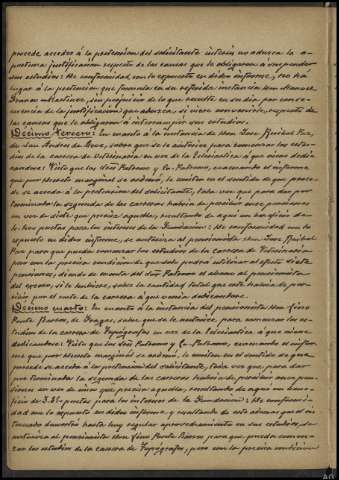 procede acceder á la pretensión del solicitante interin no aduzca la o-
portuna justificación respecto de las causas que le obligaron á suspender
sus estudios: De conformidad con lo expuesto en dicho informe, no há
lugar á la pretensión que formula en su referida instancia Don Manuel
Franco Martinez, sin perjuicio de lo que resulte en su dia por conse-
cuencia de la justificación que aduzca, si viere convenirle, respecto de
las causas que le obligaron á interrumpir sus estudios.
Décimo tercero: En cuanto á la instancia de Don José
de San Andres de sobre que se le autorice para comenzar los estu-
dios de la carrera de Veterinaria en vez de la Eclesiástica á que viene dedi-
candose: Visto que los Sres Patrono y Co-Patrono, evacuando el informe
que por decreto marginal se ordenó, lo emiten en el sentido de que proce-
de se acceda á la pretensión del solicitante, toda vez que para dar por
terminada la segunda de las carreras habria de percibir once pensiones
en vez de siete que precisa aquella, resultando de aqui un beneficio de
pesetas para los intereses de la Fundación: De conformidad con lo
expuesto en dicho informe, se autoriza al pensionista Don José
para que pueda comenzar los estudios de la carrera de Veterinaria,
pero con la precisa condición de que solo podrá utilizar al efecto siete
pensiones, siendo de cuenta del Sor Patrono el abono al pensionista
del exceso, si lo hubiere, sobre la cantidad total que este habria de per-
cibir por el resto de la carrera á que venia dedicandose.
Décimo cuarto: En cuanto á la instancia del pensionista Don Lino
Barrón, de Fraga, sobre que se le autorice, para comenzar los es-
tudios de la carrera de Topógrafos en vez de la Eclesiástica á que viene
dedicandose: Visto que los Sres Patrono y Co-Patrono, evacuando el infor-
me que por decreto marginal se ordenó, lo emiten en el sentido de que
procede se acceda á la pretensión del solicitante, toda vez que, para dar
por terminada la segunda de las carreras habria de percibir once pen-
siones en vez de cinco que precisa aquella, resultando de aqui un bene-
ficio de pesetas para los intereses de la Fundación: De conformi-
dad con lo expuesto en dicho informe, y resultando de este además que el in-
teresado demostró hasta hoy regular aprovechamiento en sus estudios, se
autoriza al pensionista Don Lino Barrón para que pueda comen-
zar los estudios de la carrera de Topógrafos, pero con la precisa condición